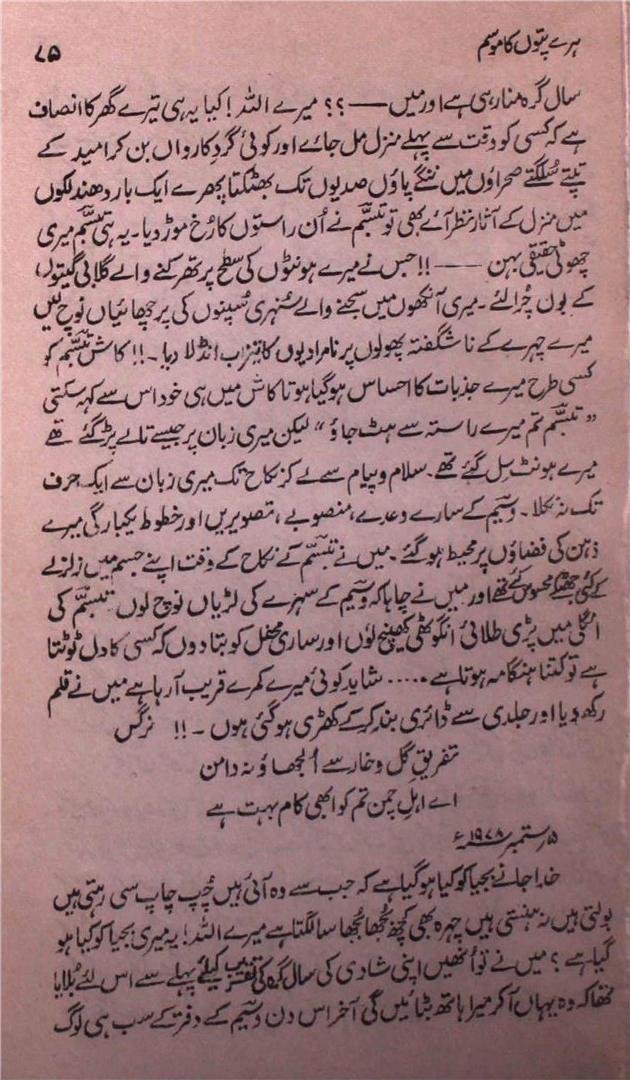 ہرے پتوں کا موسم
۷۵
سال گرہ منا رہی ہے اور میں —— ؟؟ میرے اللہ! کیا یہ ہی تیرے گھر کا انصاف
ہے کہ کسی کو وقت سے پہلے منزل مل جائے اور کوئی گردِ کارواں بن کر امید کے
تپتے سُلگتے صحراؤں میں ننگے پاؤں صدیوں تک بھٹکتا پھرے ایک بار دھندلکوں
میں منزل کے آثار نظر آئے بھی تو تبسّم نے اُن راستوں کا رُخ موڑ دیا۔ یہ ہی تبسّم میری
چھوٹی حقیقی بہن —— !! جس نے میرے ہونٹوں کی سطح پر تھرکنے والے گلابی گیتوں
کے بول چُرا لئے۔ میری آنکھوں میں سجنے والے سُنہری سُپنوں کی پرچھائیاں نوچ لیں
میرے چہرے کے ناشگفتہ پھولوں پر نامرادیوں کا تیزاب انڈلا دیا۔!! کاش تبسّم کو
کسی طرح میرے جذبات کا احساس ہو گیا ہوتا کاش میں ہی خود اس سے کہہ سکتی
”تبسّم تم میرے راستہ سے ہٹ جاؤ“ لیکن میری زبان پر جیسے تالے پڑ گئے تھے
میرے ہونٹ سِل گئے تھے۔ سلام و پیام سے لے کر نکاح تک میری زبان سے ایک حرف
تک نہ نکلا۔ وسیم کے سارے وعدے، منصوبے، تصویریں اور خطوط یکبارگی میرے
ذہن کی فضاؤں پر محیط ہو گئے۔ میں نے تبسّم کے نکاح کے وقت اپنے جسم میں زلزلے
کے کئی جھٹکے محسوس کئے تھے اور میں نے چاہا کہ وسیم کے سہرے کی لڑیاں نوچ لوں تبسّم کی
انگلی میں پڑی طلائی انگوٹھی کھینچ لوں اور ساری محفل کو بتا دوں کہ کسی کا دل ٹوٹتا
ہے تو کتنا ہنگامہ ہوتا ہے ۔۔۔۔۔ شاید کوئی میرے کمرے قریب آ رہا ہے میں نے قلم
رکھ دیا اور جلدی سے ڈائری بند کر کے کھڑی ہو گئی ہوں۔!! نرگس
تفریقِ گل و خار سے اُلجھاؤ نہ دامن
اے اہلِ چمن تم کو ابھی کام بہت ہے
۵ ستمبر ۱۹۷۸ء
خدا جانے بجیا کو کیا ہو گیا ہے کہ جب سے وہ آئی ہیں چُپ چاپ سی رہتی ہیں
بولتی ہیں نہ ہنستی ہیں چہرہ بھی کچھ بُجھا بُجھا سا لگتا ہے میرے اللہ! یہ میری بجیا کو کیا ہو
گیا ہے؟ میں نے تو اُنھیں اپنی شادی کی سال گرہ کی تقریب کیلئے پہلے سے اس لئے بُلایا
تھا کہ وہ یہاں آ کر میرا ہاتھ بٹائیں گی آخر اس دن وسیم کے دفتر کے سب ہی لوگ